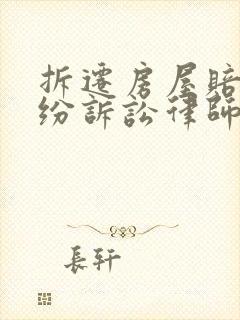 拆遷房屋賠
紛訴訟律師
長軒